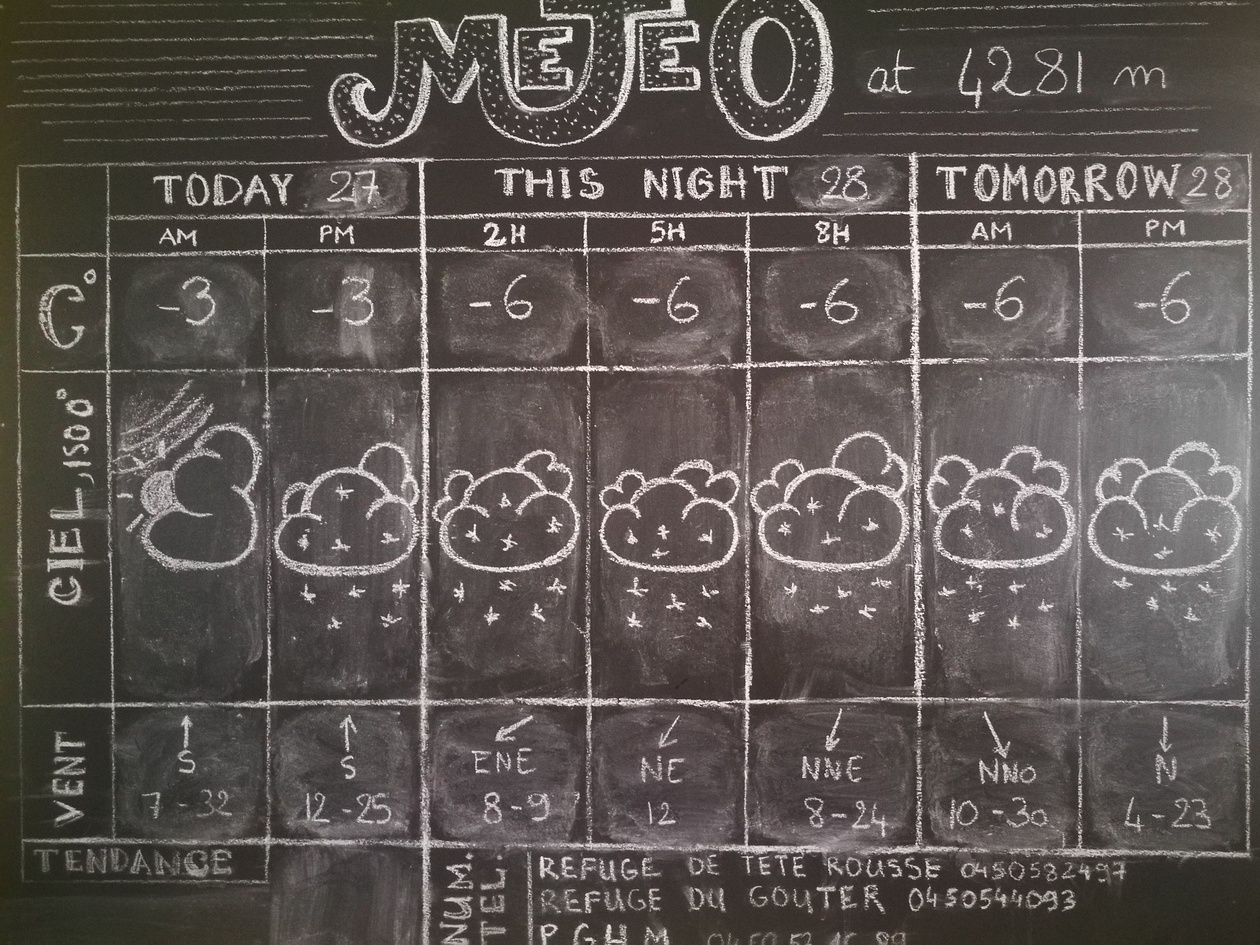 METEO at 4281 m
TODAY 27 THIS NIGHT 28 TOMORROW 28
AM PM 2H 5H 8H AM PM
C° -3 -3 -6 -6 -6 -6 -6
CIEL, ISO 0°
VENT S S ENE NE NNE NNO N
7-32 12-25 8-9 12 8-24 10-30 4-23
TENDANCE
NUM. TEL.
REFUGE DE TETE ROUSSE 0450582497
REFUGE DU GOUTER 0450544093
P G H M